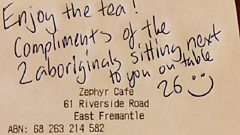 Enjoy the tea!
Compliments of the
2 aboriginals sitting next
to you on table
26
Zephyr Cafe
61 Riverside Road
East Fremantle
ABN: 68 263 214 582